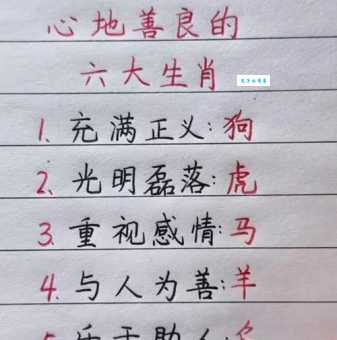 心地善良的
六大生肖
1. 充满正义:狗
2. 光明磊落:虎
3. 重视感情:马
4. 与人为善:羊
5. 乐于助人: